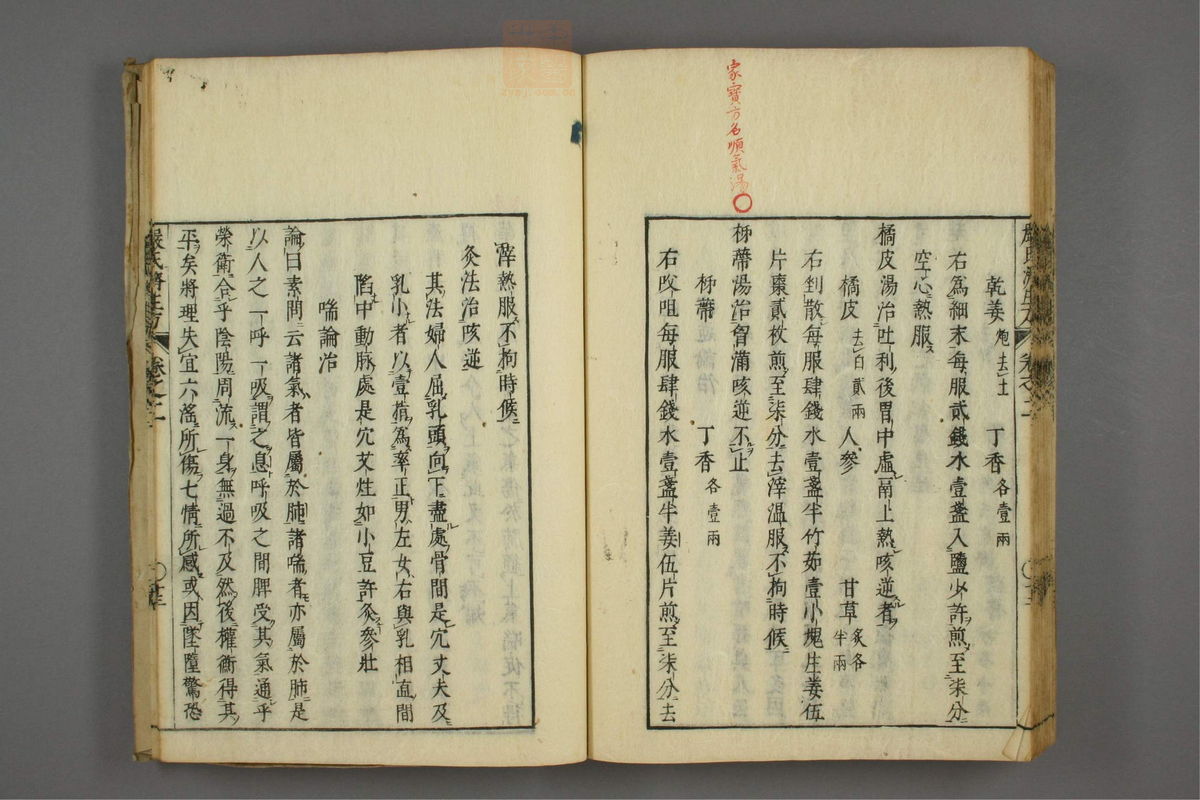 家寶方名順氣湯
乾姜炮去土 丁香各壹兩
右爲細末每服貳錢水壹盞入鹽少許煎至柒分
空心熱服
橘皮湯治吐利後胃中虛膈上熱咳逆者
橘皮去白貳兩 人參 甘草炙各半兩
右剉散每服肆錢水壹盞半竹茹壹小塊生姜伍
片棗貳枚煎至柒分去滓温服不拘時候
柹蔕湯治胷滿咳逆不止
柹蔕 丁香各壹兩
右㕮咀每服肆錢水壹盞半姜伍片煎至柒分去
滓熱服不拘時候
灸法治咳逆
其法婦人屈乳頭向下盡處骨間是穴丈夫及
乳小者以壹指爲率正男左女右與乳相直間
陷中動脉處是穴艾炷如小豆許灸參壯
喘論治
論曰素問云諸氣者皆屬於肺諸喘者亦屬於肺是
以人之一呼一吸謂之息呼吸之間脾受其氣通乎
榮衛合乎陰陽周流一身無過不及然後權衡得其
平矣將理失宜六滛所傷七情所感或因墜墮驚恐
嚴氏濟生方 卷之二 〇廿三